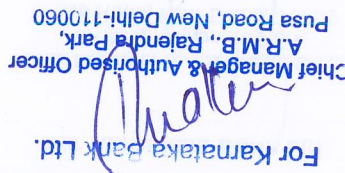 For Karnataka Bank Ltd.
Chief Manager & Authorised Officer
A.R.M.B., Rajendra Park,
Pusa Road, New Delhi-110060